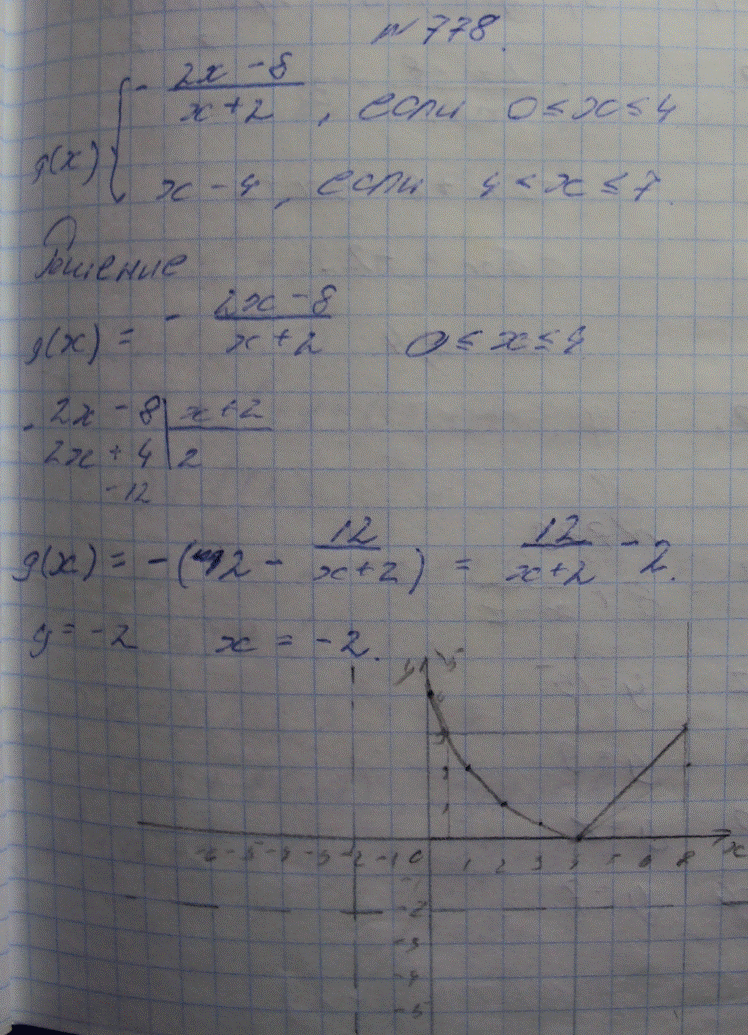 №778.
g(x) { - (2x - 8)/(x + 2), если 0 ≤ x ≤ 4
x - 4, если 4 < x ≤ 7.
Решение
g(x) = - (2x - 8)/(x + 2) 0 ≤ x ≤ 4
- 2x - 8 | x + 2
2x + 4 | 2
-12
g(x) = -(2 - 12/(x + 2)) = 12/(x + 2) - 2.
y = -2 x = -2.
y 5
4
3
2
1
-6 -5 -4 -3 -2 -1 0 1 2 3 4 5 6 8 x
-1
-2
-3
-4
-5